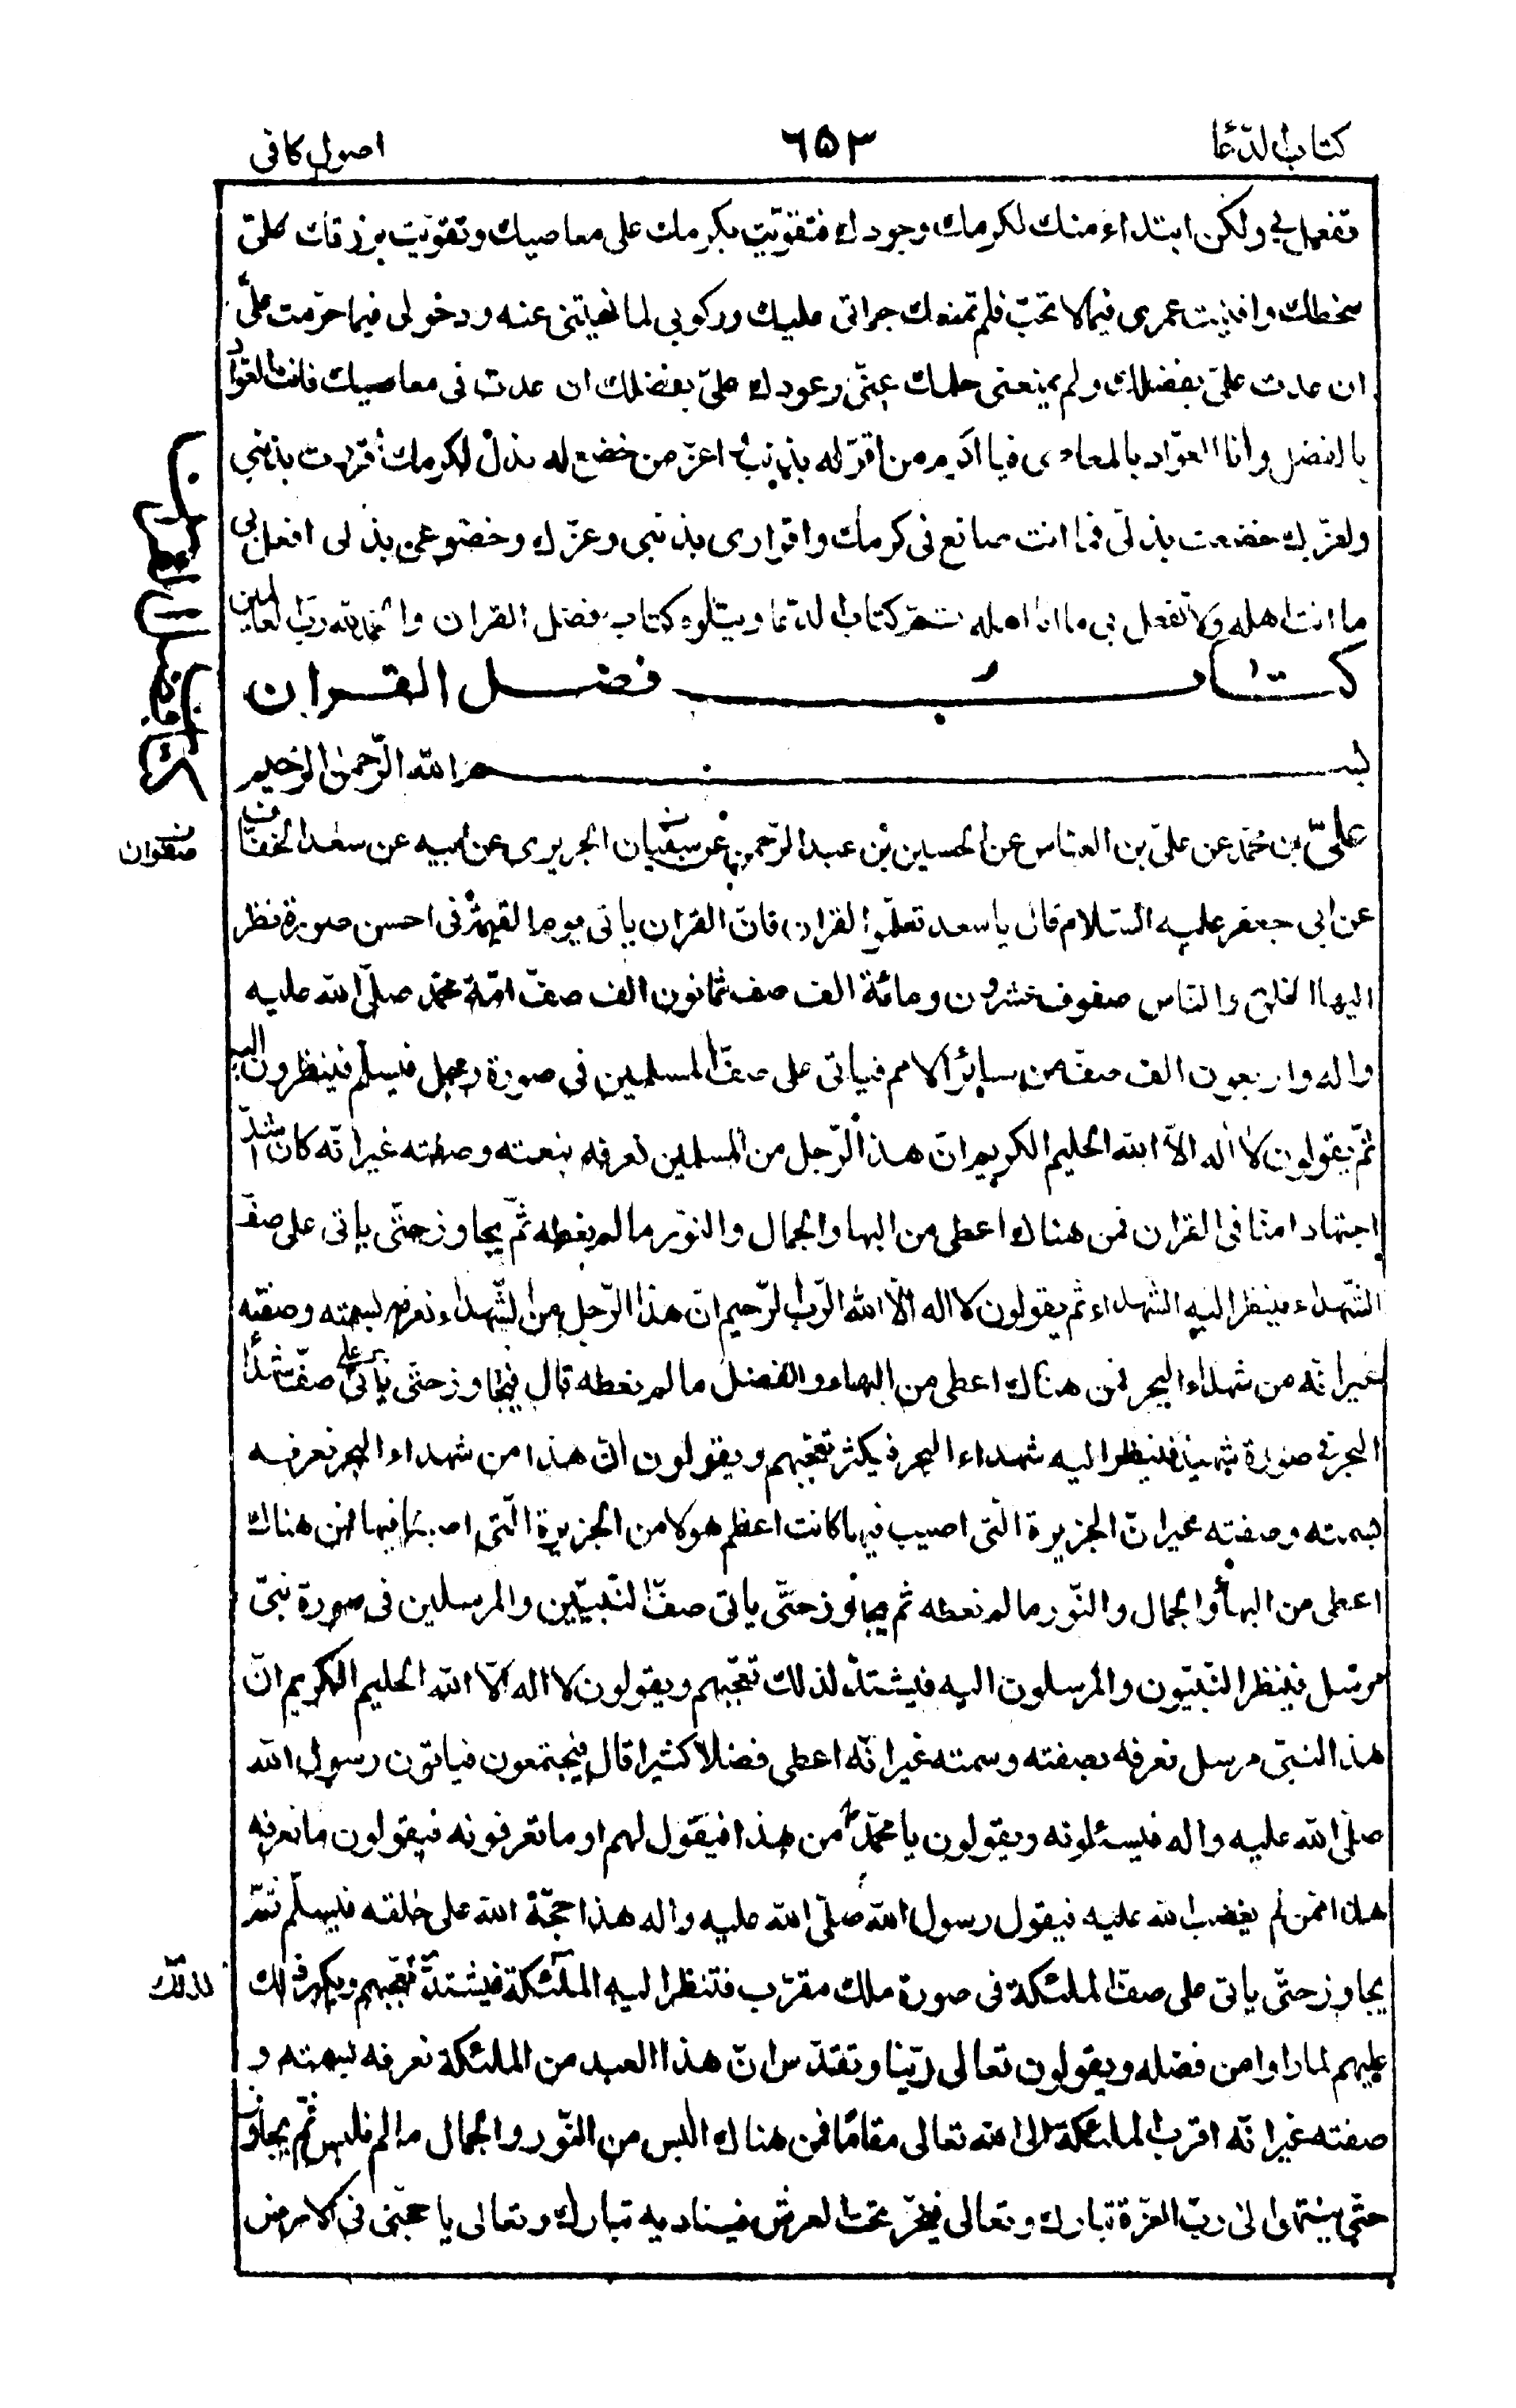 كتاب الدّعا
٦٥٣
اصول كافى
تفعله بي ولكن ابتداء منك لكرمك وجودك فتقوّيت بكرمك على معاصيك وتقوّيت برزقك على
سخطك وافنيت عمرى فيما لا تحبّ فلم تمنعك جراتى عليك وركوبي لما نهيتنى عنه ودخولى فيما حرّمت علىّ
ان عدت علىّ بفضلك ولم يمنعنى حلمك عنّى وعودك علىّ بفضلك ان عدت فى معاصيك فانت العوّاد
بالفضل وانا العوّاد بالمعاصى فيا اكرم من اقرّ له بذنب واعزّ من خضع له بذلّ لكرمك اقررت بذنبي
ولعزّك خضعت بذلّى فما انت صانع فى كرمك واقرارى بذنبى وعزّك وخضوعى بذلى افعل بي
ما انت اهله ولا تفعل بى ما انا اهله تمّ كتاب الدّعا ويتلوه كتاب فضل القران والحمد لله ربّ العالمين
كتاب فضل القران
كتاب فضل القران
بسم الله الرّحمن الرّحيم
علىّ بن محمّد عن علىّ بن العبّاس عن الحسين بن عبد الرّحمن عن سفيان الجريرى عن ابيه عن سعد الخفّاف
صفوان
عن ابى جعفر عليه السّلام قال يا سعد تعلّموا القران فانّ القران ياتى يوم القيمة فى احسن صورة نظر
اليها الخلق والناس صفوف عشرون ومائة الف صف ثمانون الف صفّ امّة محمّد صلّى الله عليه
واله واربعون الف صفّ من سائر الامم فياتى على صفّ المسلمين فى صورة رجل فيسلّم فينظرون اليه
ثمّ يقولون لا اله الاّ الله الحليم الكريم انّ هذا الرّجل من المسلمين نعرفه بنعته وصفته غير انّه كان اشدّ
اجتهادا منّا فى القران فمن هناك اعطى من البها والجمال والنوّر ما لم نعطه ثمّ يجاوز حتّى ياتى على صفّ
الشّهداء فينظر اليه الشهداء ثم يقولون لا اله الاّ الله الرّب الرّحيم انّ هذا الرّجل من الشّهداء نعرفه بسمته وصفته
غير انّه من شهداء البحر فمن هناك اعطى من البهاء والفضل ما لم نعطه قال فيتجاوز حتّى ياتى على صفّ شهداء
البحر فى صورة شهيد فينظر اليه شهداء البحر فيكثر تعجّبهم ويقولون انّ هذا من شهداء البحر نعرفه
بسمته وصفته غير انّ الجزيرة التى اصيب فيها كانت اعظم هولا من الجزيرة الّتى اصبنا فيها فمن هناك
اعطى من البهاء والجمال والنّور ما لم نعطه ثم يجاوز حتّى ياتى صفّ النّبيّين والمرسلين فى صورة نبىّ
مرسل فينظر النّبيّون والمرسلون اليه فيشتدّ لذلك تعجّبهم ويقولون لا اله الاّ الله الحليم الكريم انّ
هذا النبىّ مرسل نعرفه بصفته وسمته غير انّه اعطى فضلا كثيرا قال فيجتمعون فياتون رسول الله
صلّى الله عليه واله فيسئلونه ويقولون يا محمّد من هذا فيقول لهم او ما تعرفونه فيقولون ما نعرفه
هذا ممّن لم يغضب الله عليه فيقول رسول الله صلّى الله عليه واله هذا حجّة الله على خلقه فيسلّم ثمّ
يجاوز حتّى ياتى على صفّ الملئكة فى صورة ملك مقرّب فتنظر اليه الملٰئكة فيشتدّ تعجّبهم ويكبر ذلك
لذلك
عليهم لما راوا من فضله ويقولون تعالى ربّنا وتقدّس انّ هذا العبد من الملئكة نعرفه بسمته و
صفته غير انّه اقرب الملئكة الى الله تعالى مقاما فمن هناك البس من النّور والجمال ما لم نلبس ثمّ يجاوز
حتّى ينتهى الى ربّ العزّة تبارك وتعالى فيخرّ تحت العرش فيناديه تبارك وتعالى يا حجّتى فى الارض